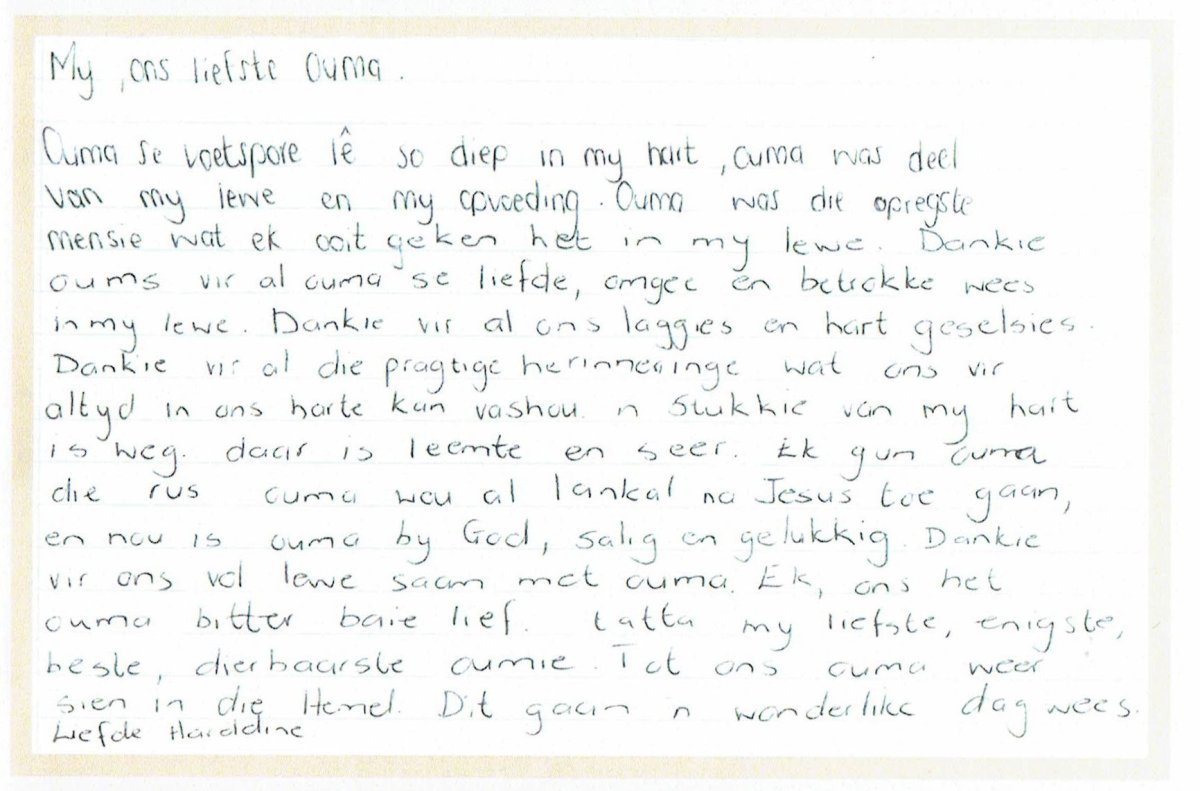 My, ons liefste Ouma.
Ouma se voetspore lê so diep in my hart, ouma was deel
van my lewe en my opvoeding. Ouma was die opregste
mensie wat ek ooit geken het in my lewe. Dankie
oums vir al ouma se liefde, omgee en betrokke wees
in my lewe. Dankie vir al ons laggies en hart geselsies.
Dankie vir al die pragtige herinneringe wat ons vir
altyd in ons harte kan vashou. n Stukkie van my hart
is weg. daar is leemte en seer. Ek gun ouma
die rus ouma wou al lankal na Jesus toe gaan,
en nou is ouma by God, salig en gelukkig. Dankie
vir ons vol lewe saam met ouma. Ek, ons het
ouma bitter baie lief. tatta my liefste, enigste,
beste, dierbaarste oumie. Tot ons ouma weer
sien in die Hemel. Dit gaan n wonderlike dag wees.
Liefde